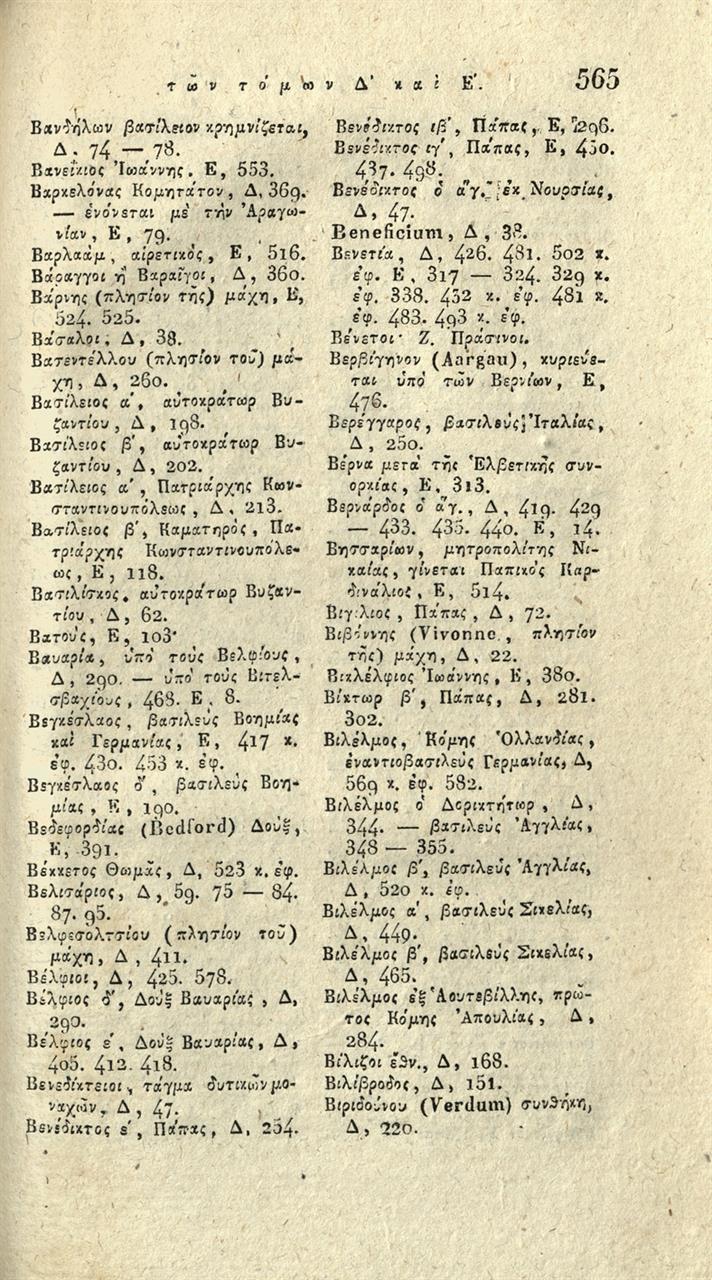 τῶν τόμων Δ' καὶ Ε'. 565
Βανδήλων βασίλειον κρημνίζεται,
Δ. 74 — 78.
Βανείκιος Ἰωάννης, Ε, 553.
Βαρκελόνας Κομητάτον, Δ, 369.
— ἑνόνεται μὲ τὴν Ἀραγω-
νίαν, Ε, 79.
Βαρλαάμ, αἱρετικὸς, Ε, 516.
Βάραγγοι ἢ Βαραῖγοι, Δ, 360.
Βάρνης (πλησίον τῆς) μάχη, Ε,
524. 525.
Βάσαλοι, Δ, 38.
Βατεντέλλου (πλησίον τοῦ) μά-
χη, Δ, 260.
Βασίλειος α', αὐτοκράτωρ Βυ-
ζαντίου, Δ, 198.
Βασίλειος β', αὐτοκράτωρ Βυ-
ζαντίου, Δ, 202.
Βασίλειος α', Πατριάρχης Κων-
σταντινουπόλεως, Δ, 213.
Βασίλειος β', Καματηρὸς, Πα-
τριάρχης Κωνσταντινουπόλε-
ως, Ε, 118.
Βασιλίσκος, αὐτοκράτωρ Βυζαν-
τίου, Δ, 62.
Βατοὺς, Ε, 103·
Βαυαρία, ὑπὸ τοὺς Βελφίους,
Δ, 290. — ὑπὸ τοὺς Βιτελ-
σβαχίους, 468. Ε, 8.
Βεγκέσλαος, βασιλεὺς Βοημίας
καὶ Γερμανίας, Ε, 417 κ.
ἐφ. 430. 453 κ. ἐφ.
Βεγκέσλαος δ', βασιλεὺς Βοη-
μίας, Ε, 190.
Βεδεφορδίας (Bedford) Δοὺξ,
Ε, 391.
Βέκκετος Θωμᾶς, Δ, 523 κ. ἐφ.
Βελισάριος, Δ, 59. 75 — 84.
87. 95.
Βελφεσολτσίου (πλησίον τοῦ)
μάχη, Δ, 411.
Βέλφιοι, Δ, 425. 578.
Βέλφιος δ', Δοὺξ Βαυαρίας, Δ,
290.
Βέλφιος ε', Δοὺξ Βαυαρίας, Δ,
405. 412. 418.
Βενεδίκτειοι, τάγμα δυτικῶν μο-
ναχῶν, Δ, 47.
Βενέδικτος ε', Πάπας, Δ, 254.
Βενέδικτος ιβ', Πάπας, Ε, 296.
Βενέδικτος ιγ', Πάπας, Ε, 430.
437. 498.
Βενέδικτος ὁ ἅγ. ἐκ Νουρσίας,
Δ, 47.
Beneficium, Δ, 38.
Βενετία, Δ, 426. 481. 502 κ.
ἐφ. Ε, 317 — 324. 329 κ.
ἐφ. 338. 452 κ. ἐφ. 481 κ.
ἐφ. 483. 493 κ. ἐφ.
Βένετοι· Ζ. Πράσινοι.
Βερβίγηνον (Aargau), κυριεύε-
ται ὑπὸ τῶν Βερνίων, Ε,
476.
Βερέγγαρος, βασιλεὺς Ἰταλίας,
Δ, 250.
Βέρνα μετὰ τῆς Ἑλβετικῆς συν-
ορκίας, Ε, 313.
Βερνάρδος ὁ ἅγ., Δ, 419. 429
— 433. 435. 440. Ε, 14.
Βησσαρίων, μητροπολίτης Νι-
καίας, γίνεται Παπικὸς Καρ-
δινάλιος, Ε, 514.
Βιγίλιος, Πάπας, Δ, 72.
Βιβόννης (Vivonne, πλησίον
τῆς) μάχη, Δ, 22.
Βικλέλφιος Ἰωάννης, Ε, 380.
Βίκτωρ β', Πάπας, Δ, 281.
302.
Βιλέλμος, Κόμης Ὁλλανδίας,
ἐναντιοβασιλεὺς Γερμανίας, Δ,
569 κ. ἐφ. 582.
Βιλέλμος ὁ Δορικτήτωρ, Δ,
344. — βασιλεὺς Ἀγγλίας,
348 — 355.
Βιλέλμος β', βασιλεὺς Ἀγγλίας,
Δ, 520 κ. ἐφ.
Βιλέλμος α', βασιλεὺς Σικελίας,
Δ, 449.
Βιλέλμος β', βασιλεὺς Σικελίας,
Δ, 465.
Βιλέλμος ἐξ Ἁουτεβίλλης, πρῶ-
τος Κόμης Ἀπουλίας, Δ,
284.
Βίλιζοι ἔθν., Δ, 168.
Βιλίβροδος, Δ, 151.
Βιριδούνου (Verdum) συνθήκη,
Δ, 220.